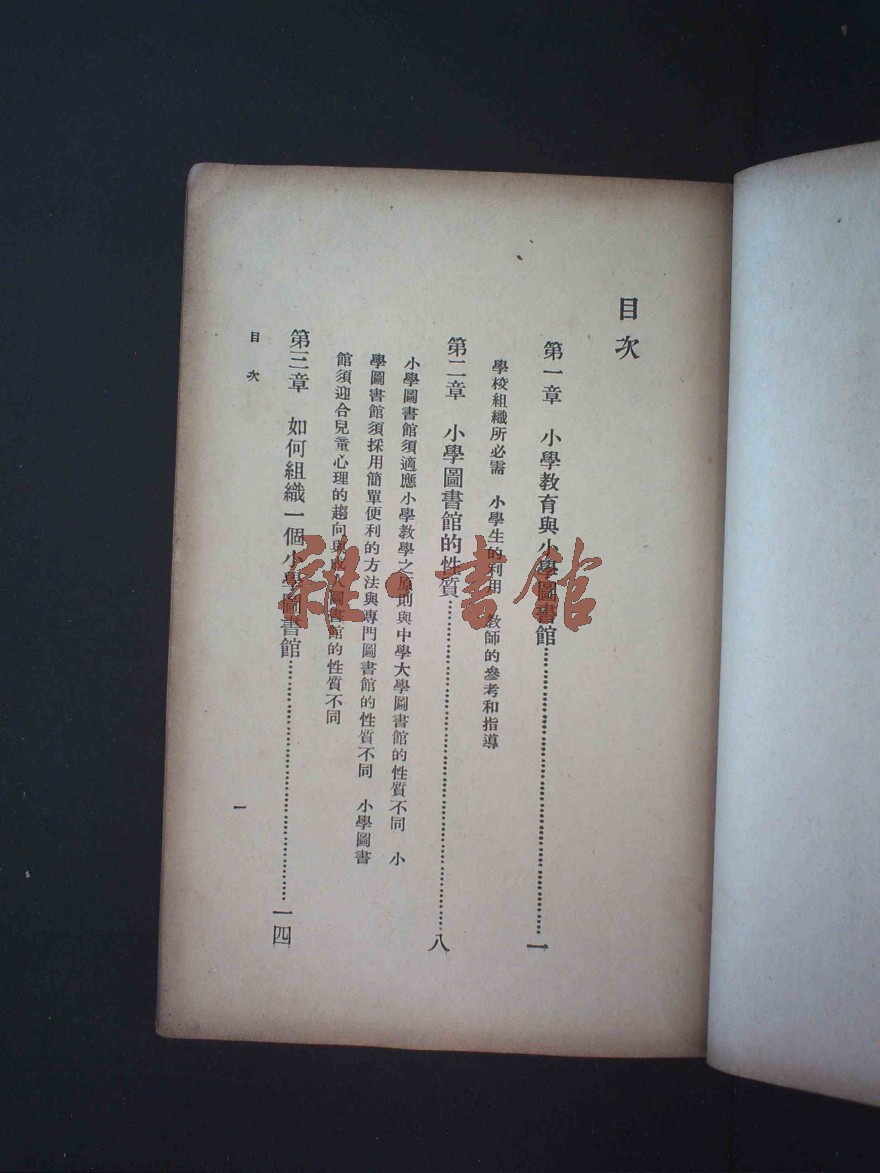 目次
第一章　小學教育與小學圖書館……一
學校組織所必需　小學生的利用　教師的參考和指導
第二章　小學圖書館的性質……八
小學圖書館須適應小學教學之原則與中學大學圖書館的性質不同　小
學圖書館須採用簡單便利的方法與專門圖書館的性質不同　小學圖書
館須迎合兒童心理的趨向與成人圖書館的性質不同
第三章　如何組織一個小學圖書館……一四
目次
一
雜·書館